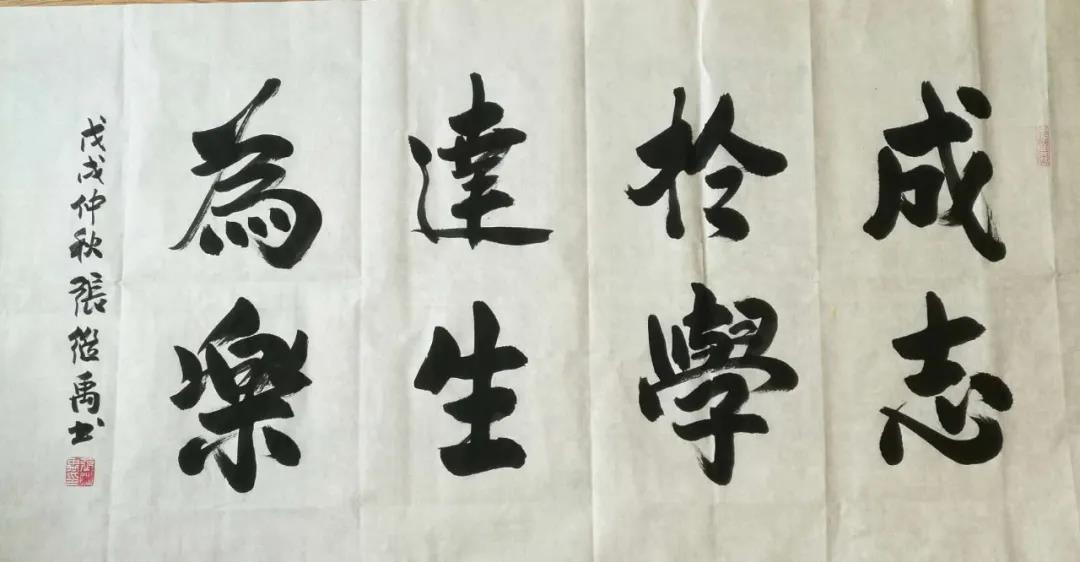 成志
於學
達生
為樂
戊戌仲秋張繼禹书